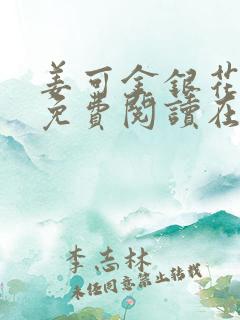 姜可金銀花
免費閱讀在
李志林
未经同意禁止转载